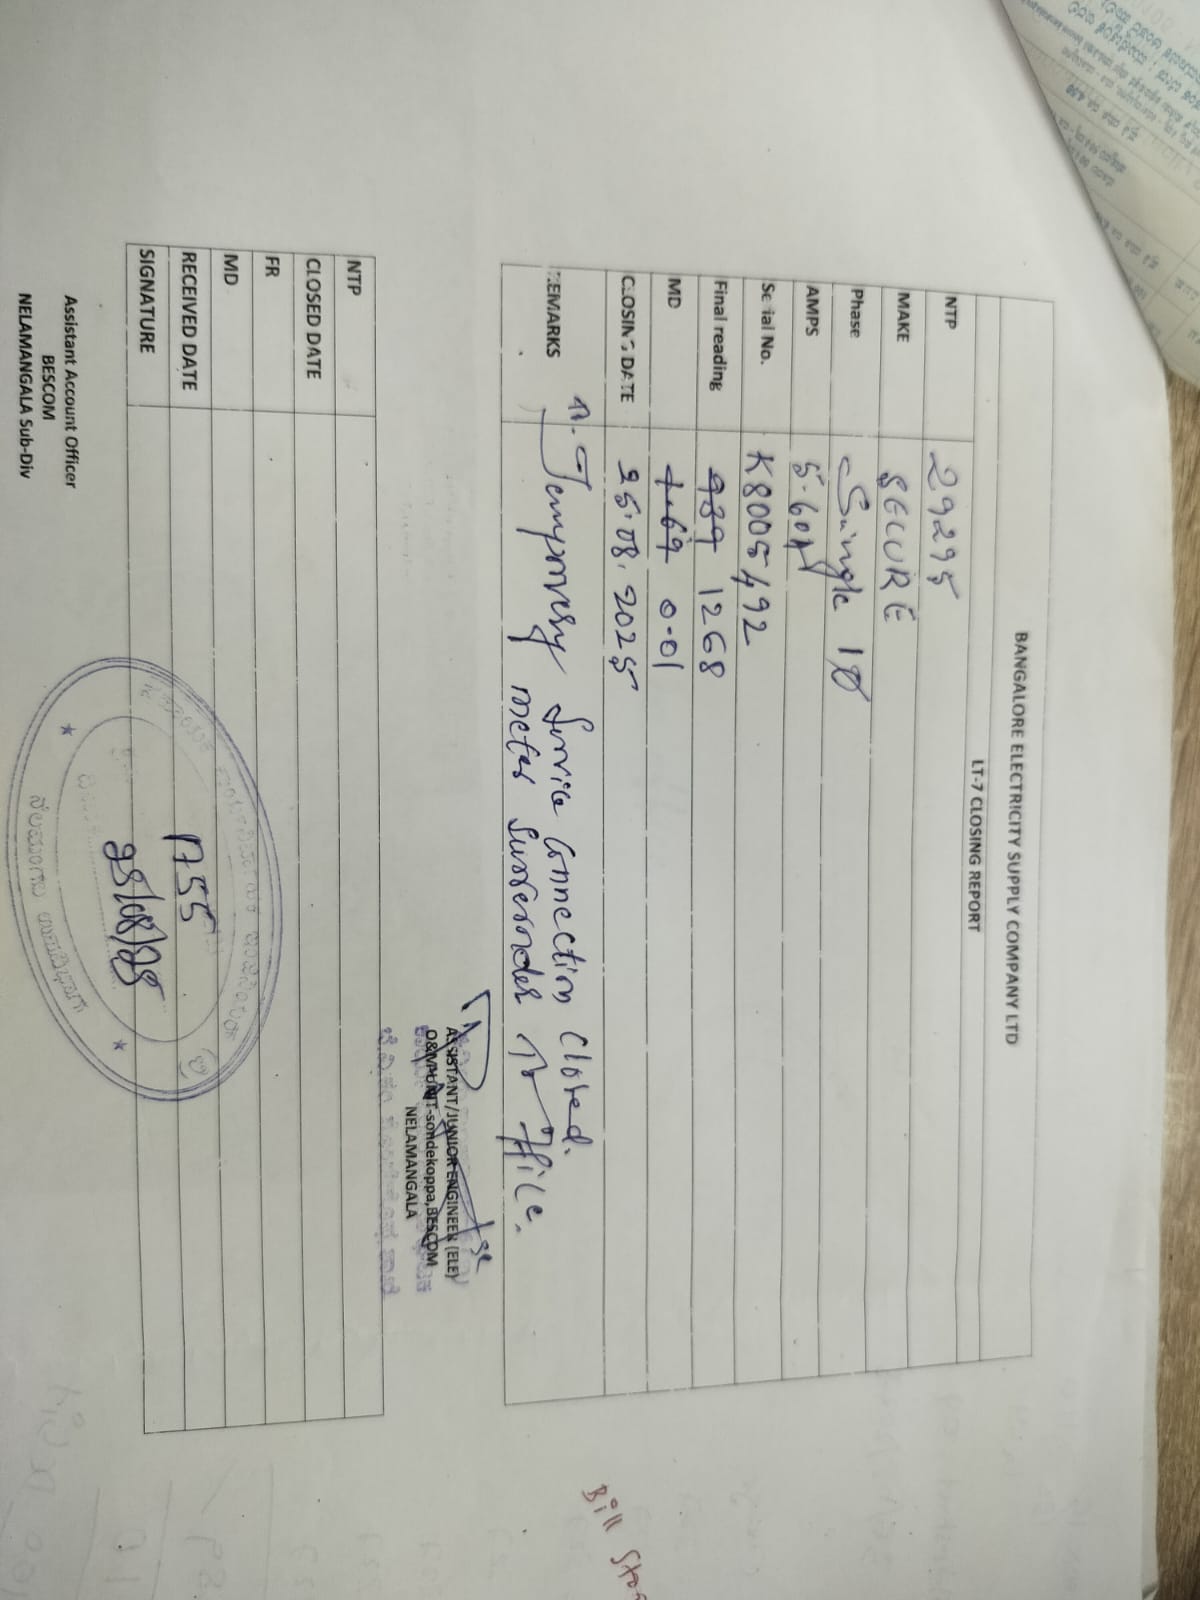 BANGALORE ELECTRICITY SUPPLY COMPANY LTD
LT-7 CLOSING REPORT
NTP 29295
MAKE SECURE
Phase Single 1Ø
AMPS 5-60A
Serial No. K8005492
Final reading 939 1268
MD 1.69 0.01
CLOSING DATE 25.08.2025
REMARKS Temporvery Service Connection Closed.
meter Surrender to office.
ASSISTANT/JUNIOR ENGINEER (ELE)
O&M UNIT-sondekoppa,BESCOM
NELAMANGALA
NTP
CLOSED DATE
FR
MD
RECEIVED DATE 1755
SIGNATURE 25/08/25
ನೆಲಮಂಗಲ ಉಪವಿಭಾಗ
Assistant Account Officer
BESCOM
NELAMANGALA Sub-Div
Bill